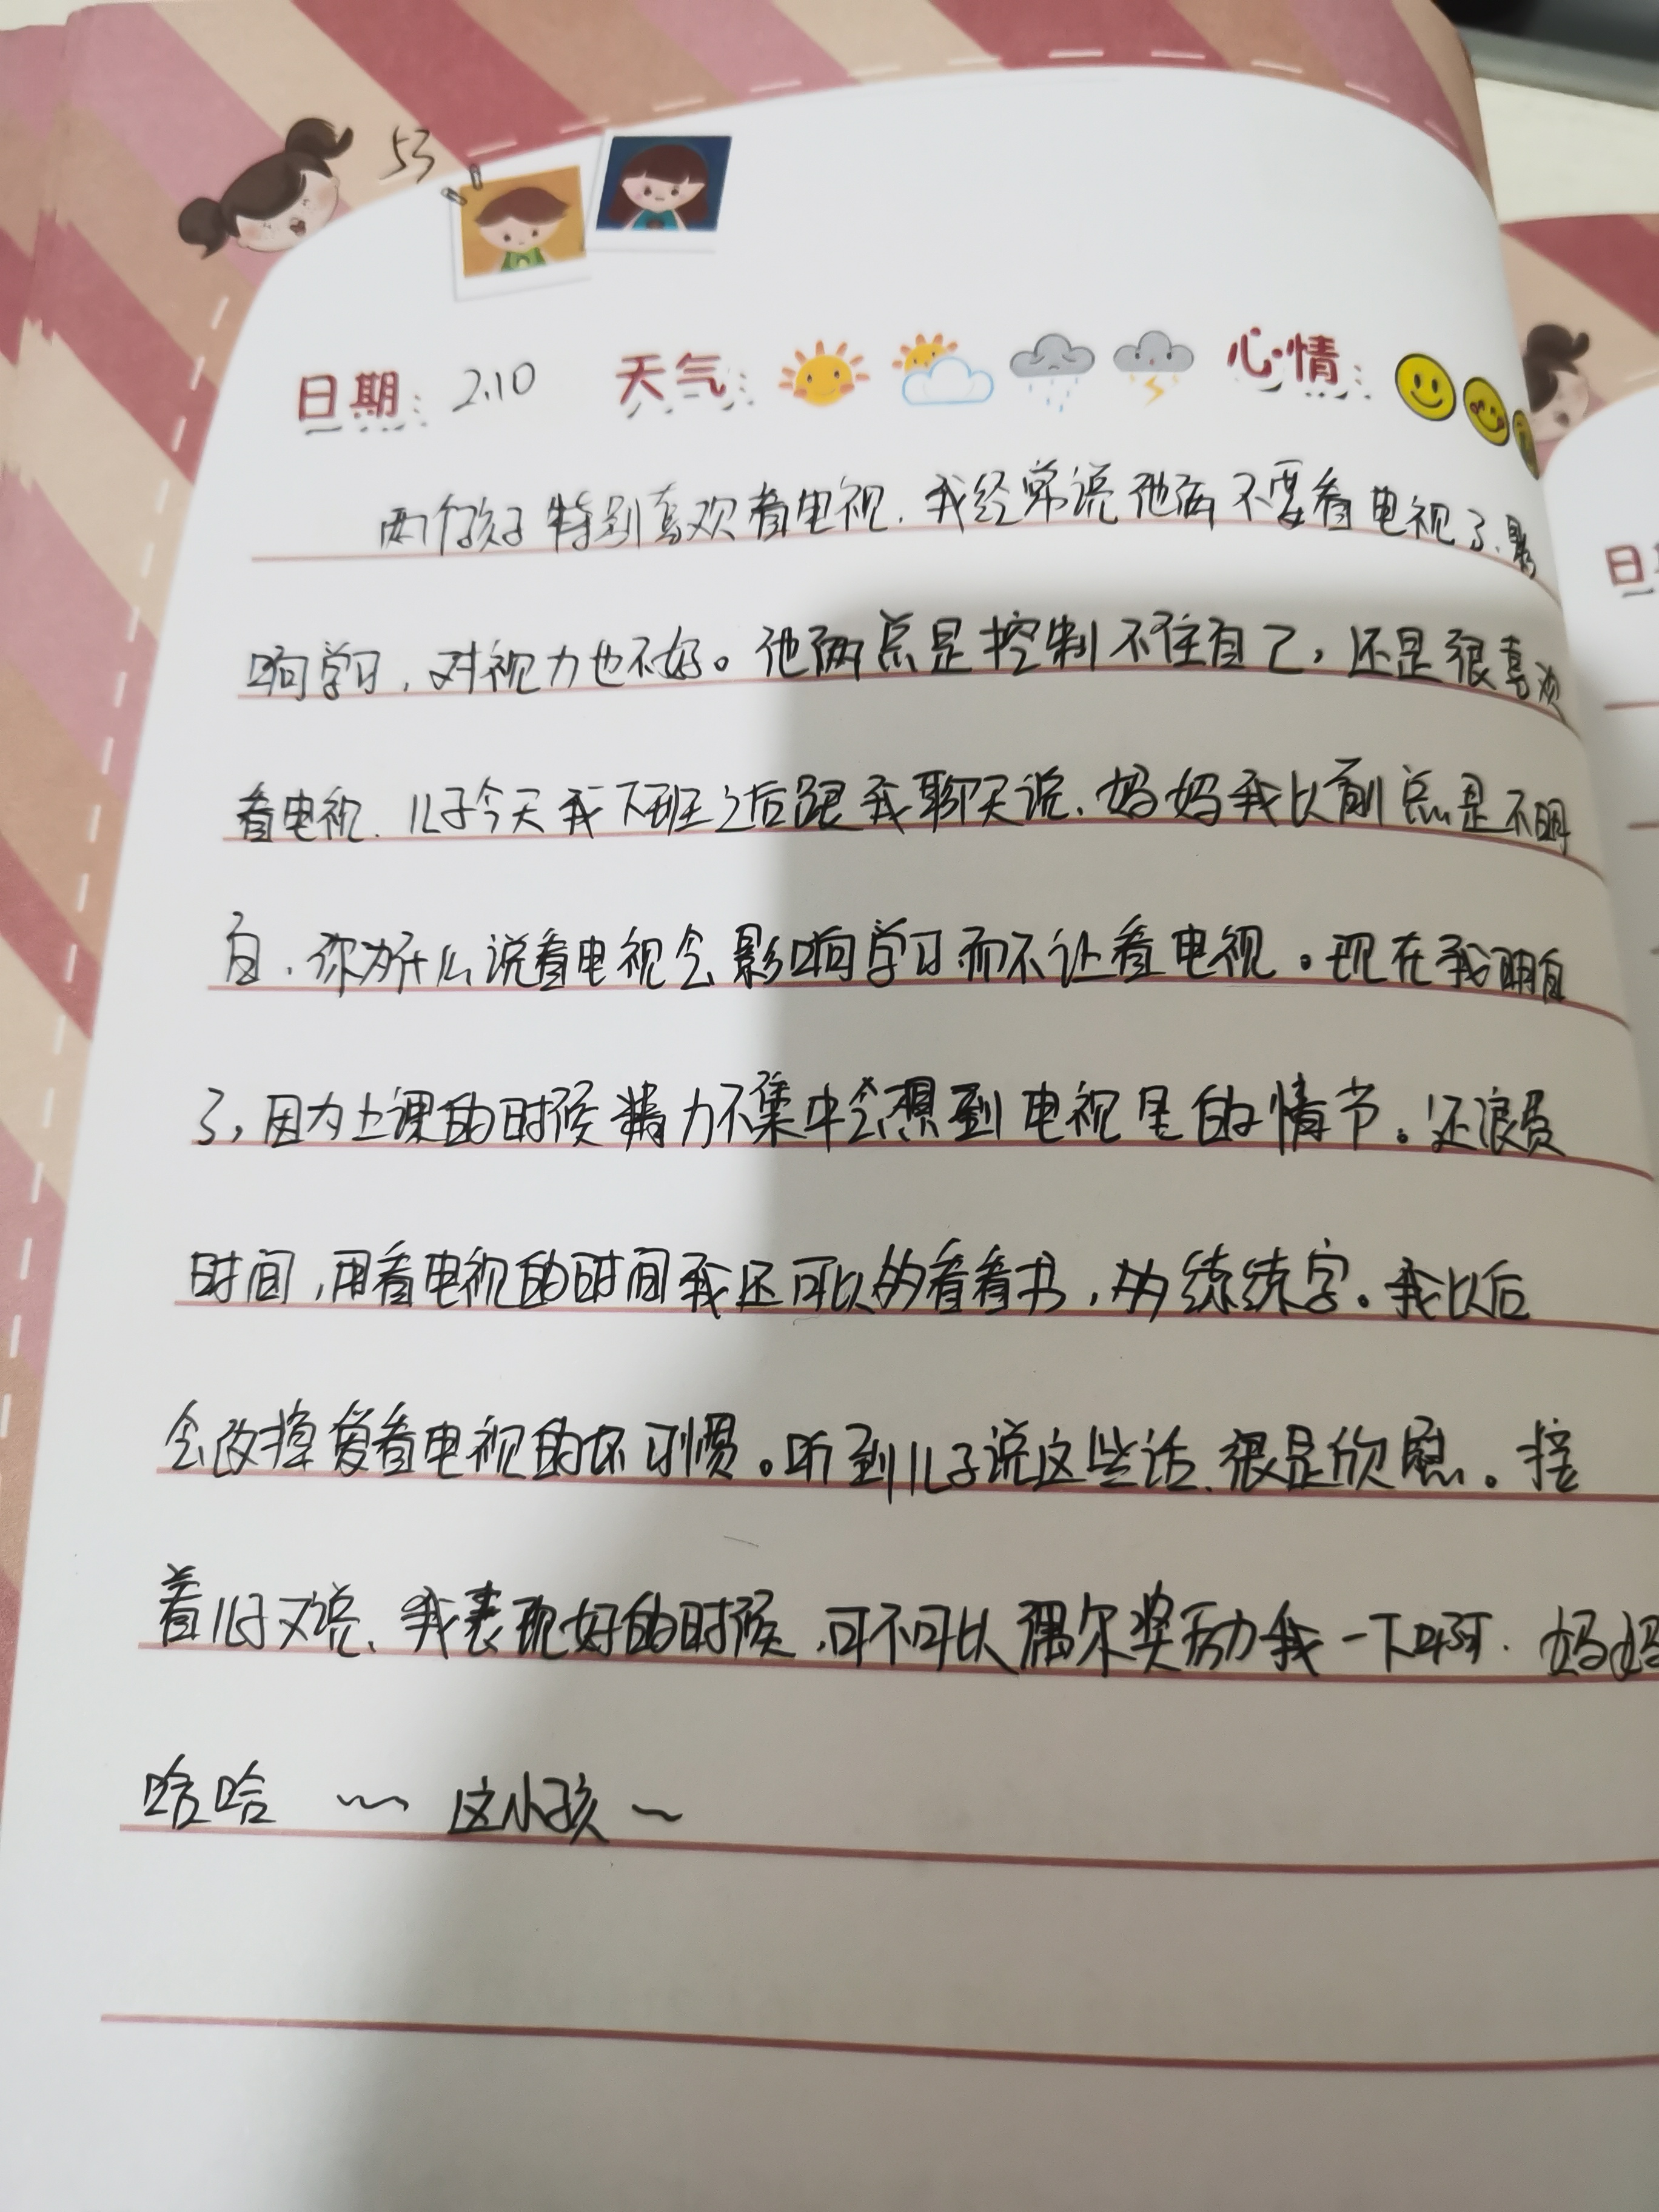 53
日期: 2.10 天气: 心情:
两个孩子特别喜欢看电视.我经常说他俩不要看电视了.影
响学习,对视力也不好。他俩总是控制不住自己,还是很喜欢
看电视.儿子今天我下班之后跟我聊天说.妈妈我以前总是不明
白.你为什么说看电视会影响学习而不让看电视。现在我明白
了,因为上课的时候精力不集中会想到电视里的情节。还浪费
时间,用看电视的时间我还可以多看看书,多练练字。我以后
会改掉爱看电视的坏习惯。听到儿子说这些话.很是欣慰。接
着儿子又说、我表现好的时候,可不可以偶尔奖励我一下啊.妈妈
哈哈 ~~ 这小孩~
日